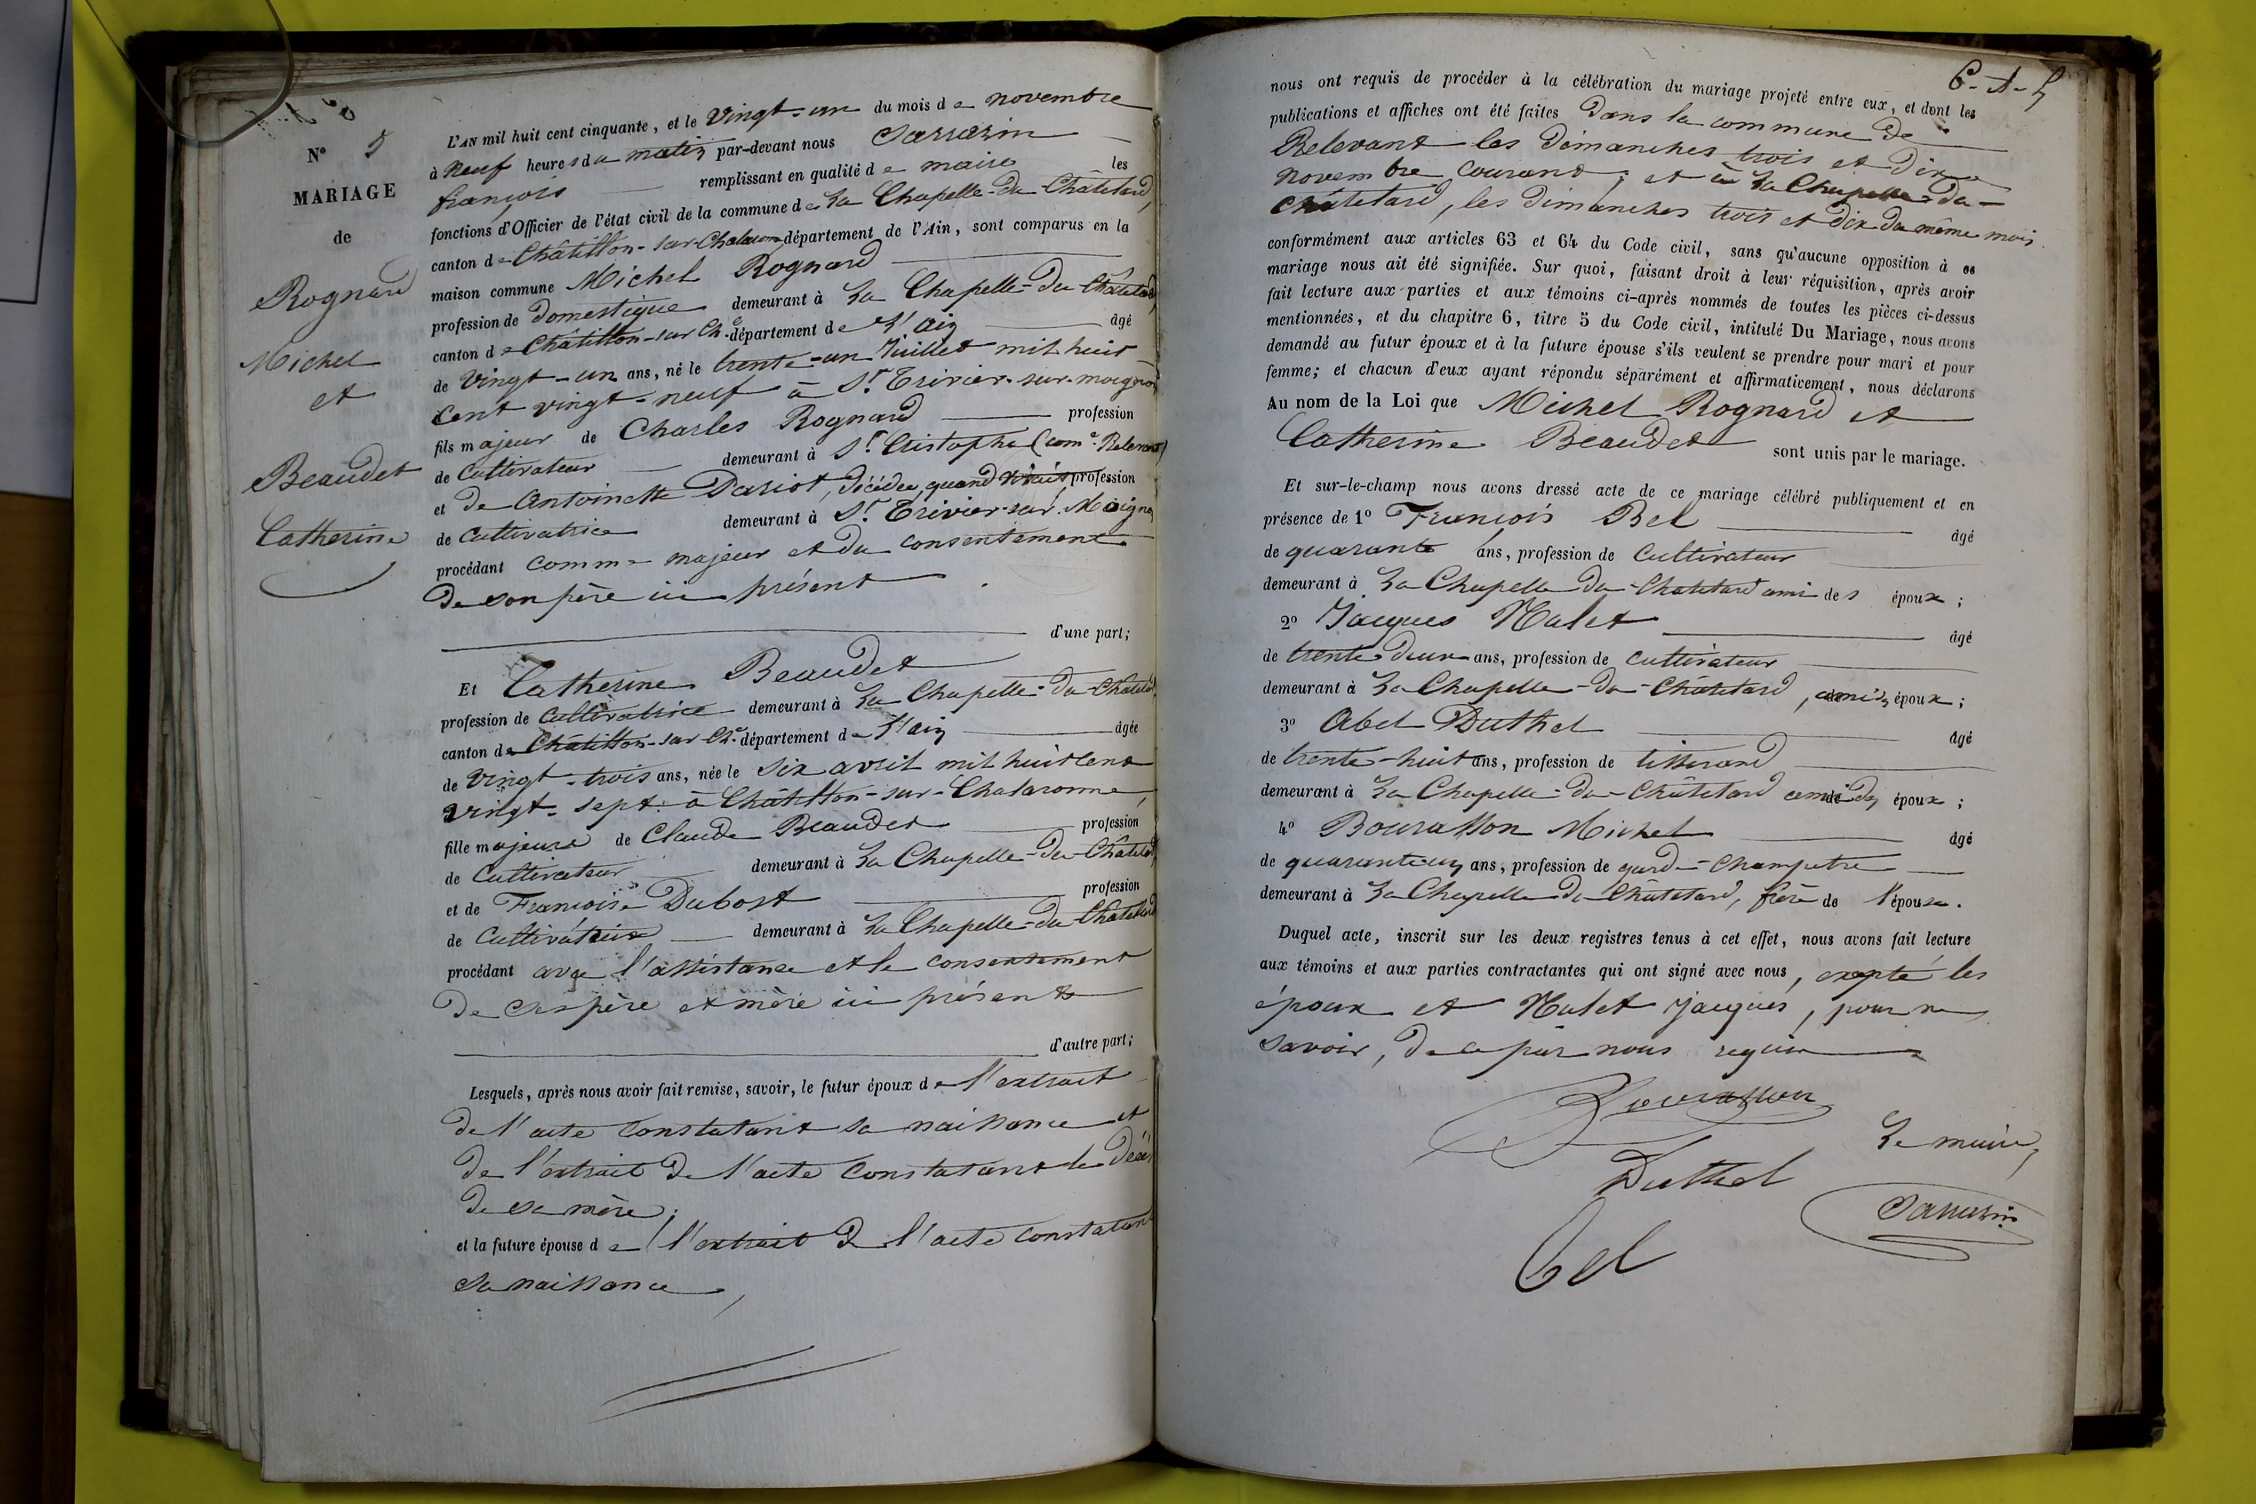 N° 5
MARIAGE
de
Rognard
Michel
et
Beaudet
Catherine
L'AN mil huit cent cinquante, et le vingt-un du mois de novembre
à neuf heures du matin par-devant nous Sarrazin
françois remplissant en qualité de maire les
fonctions d'Officier de l'état civil de la commune de La Chapelle-du-Châtelard,
canton de Châtillon-sur-Chalaronne département de l'Ain, sont comparus en la
maison commune Michel Rognard
profession de domestique demeurant à La Chapelle-du-Châtelard,
canton de Châtillon-sur-Ch.e département de l'ain âgé
de vingt-un ans, né le trente-un Juillet mil huit
cent vingt-neuf à St. Trivier-sur-moignans
fils majeur de Charles Rognard profession
de cultivateur demeurant à St. Cristophe (com.e Relevant)
et de Antoinette Dariot, décédée, quand vivait profession
de cultivatrice demeurant à St. Trivier-sur-Moignans
procédant comme majeur et du consentement
de son père ici présent
d'une part;
Et Catherine Beaudet
profession de cultivatrice demeurant à La Chapelle-du-Châtelard,
canton de Châtillon-sur-Ch.e département de l'ain âgée
de vingt-trois ans, née le six avril mil huit cent
vingt-sept à Châtillon-sur-Chalaronne,
fille majeure de Claude Beaudet profession
de cultivateur demeurant à La Chapelle-du-Châtelard,
et de Françoise Dubost profession
de cultivatrice demeurant à La Chapelle-du-Châtelard
procédant avec l'assistance et le consentement
de ces père et mère ici présents
d'autre part;
Lesquels, après nous avoir fait remise, savoir, le futur époux de l'extrait
de l'acte constatant sa naissance et
de l'extrait de l'acte constatant le décès
de sa mère;
et la future épouse de l'extrait de l'acte constatant
sa naissance,
nous ont requis de procéder à la célébration du mariage projeté entre eux, et dont les
publications et affiches ont été faites dans la commune de
Relevant les dimanches trois et dix
novembre courant; et à La Chapelle-du-
Châtelard, les dimanches trois et dix du même mois
conformément aux articles 63 et 64 du Code civil, sans qu'aucune opposition à ce
mariage nous ait été signifiée. Sur quoi, faisant droit à leur réquisition, après avoir
fait lecture aux parties et aux témoins ci-après nommés de toutes les pièces ci-dessus
mentionnées, et du chapitre 6, titre 5 du Code civil, intitulé Du Mariage, nous avons
demandé au futur époux et à la future épouse s'ils veulent se prendre pour mari et pour
femme; et chacun d'eux ayant répondu séparément et affirmativement, nous déclarons
Au nom de la Loi que Michel Rognard et
Catherine Beaudet sont unis par le mariage.
Et sur-le-champ nous avons dressé acte de ce mariage célébré publiquement et en
présence de 1° François Bel âgé
de quarante ans, profession de cultivateur
demeurant à La Chapelle-du-Chatelard ami des époux;
2° Jacques Malet âgé
de trente deux ans, profession de cultivateur
demeurant à La Chapelle-du-Châtelard, amis époux;
3° Abel Duthel âgé
de trente-huit ans, profession de tisserand
demeurant à La Chapelle-du-Châtelard ami des époux;
4° Bourasson Michel âgé
de quarante un ans, profession de garde-champetre
demeurant à La Chapelle-du-Châtelard, frère de l'épouse.
Duquel acte, inscrit sur les deux registres tenus à cet effet, nous avons fait lecture
aux témoins et aux parties contractantes qui ont signé avec nous, excepté les
époux et Malet Jacques, pour ne
savoir, de ce par nous requis
Bourasson
Le maire,
Duthel
Sarrazin
Bel